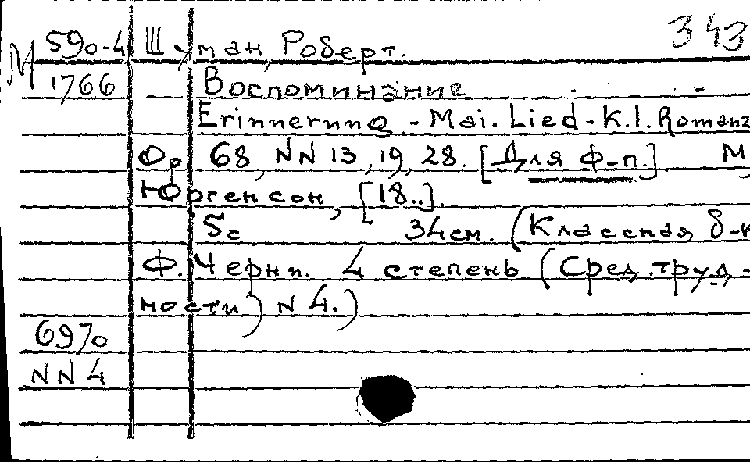 343
590-4 Шуман, Роберт.
М 1766 Воспоминание
Erinnerung - Mai. Lied - K.l. Romanz
Op 68, NN 13, 19, 28. [Для ф-п.] М
Юргенсон, [18..].
5с 34см. (Классная б-к
Ф. Черни. 4 степень (Сред. труд-
ности) N 4.)
NN 4